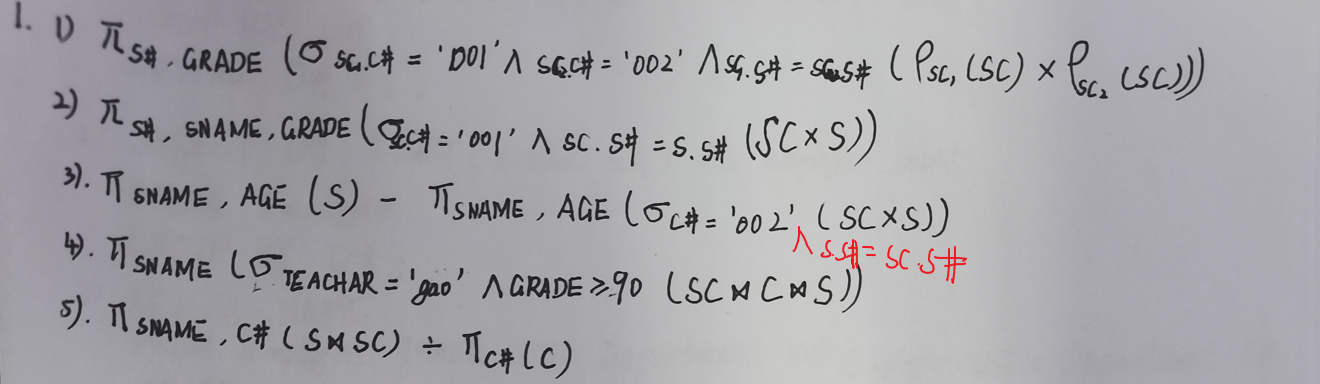 1. 1) π S#, GRADE (σ SC₁.C# = '001' ∧ SC₂.C# = '002' ∧ SC₁.S# = SC₂.S# (ρ SC₁ (SC) × ρ SC₂ (SC)))
2) π S#, SNAME, GRADE (σ SC.C# = '001' ∧ SC.S# = S.S# (SC × S))
3). π SNAME, AGE (S) − π SNAME, AGE (σ C# = '002' (SC × S))
∧ S.S# = SC.S#
4). π SNAME (σ TEACHAR = 'gao' ∧ GRADE ≥ 90 (SC ⋈ C ⋈ S))
5). π SNAME, C# (S ⋈ SC) ÷ π C# (C)